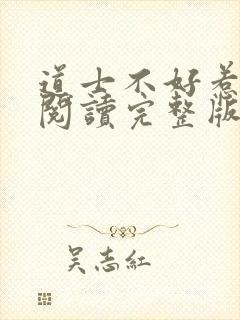 道士不好惹
閱讀完整版
吳志紅